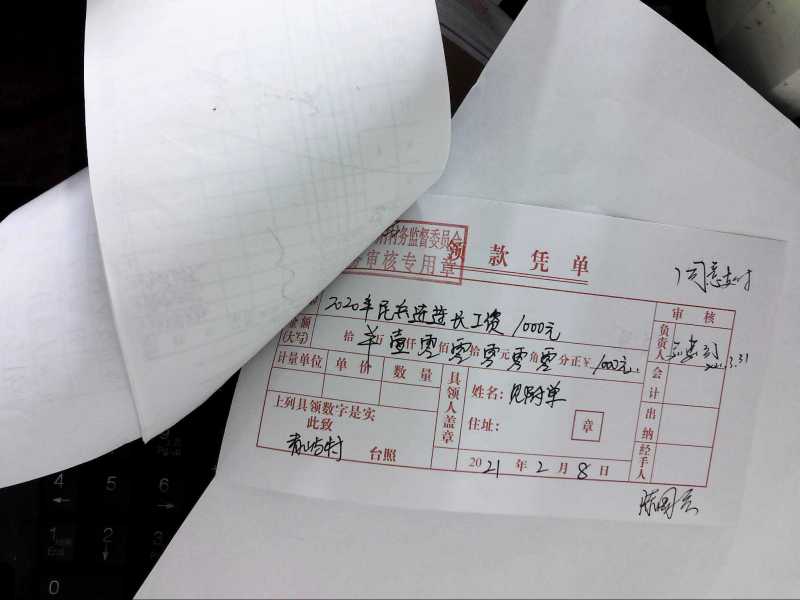 村务监督委员会
审核专用章
领款凭单
同意支付
2020年民兵连连长工资 1000元
金额(大写) 拾 万 壹仟 零佰 零拾 零元 零角 零分正 ¥ 1000元
计量单位 单价 数量
上列具领数字是实
此致
台照
具领人盖章
姓名: 见附单
住址:
章
2021年2月8日
审核
负责人
3.31
会计
出纳
经手人
4 5 6
1 End 2 3
0